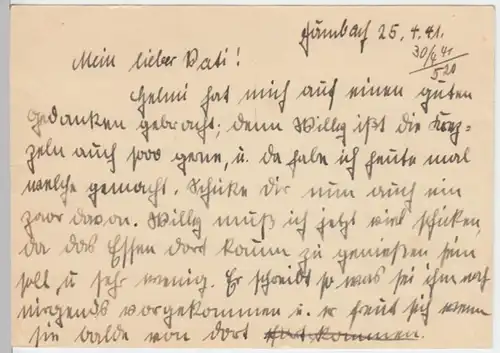 Hambach 25.4.41.
30/4 41
5 20
Mein lieber Vati!
Helmi hat mich auf einen guten
Gedanken gebracht; denn Willy ißt die Krez-
zeln auch sooo gerne, u. da habe ich heute mal
welche gemacht. Schicke Dir nun auch ein
paar davon. Willy muß ich jetzt viel schicken,
da das Essen dort kaum zu genießen sein
soll u sehr wenig. Er schreibt so was sei ihm noch
nirgends vorgekommen u. er freut sich wenn
sie balde von dort fortkommen.